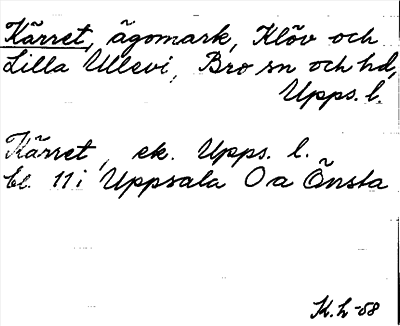 Kärret, ägomark, Klöv och
Lilla Ullevi, Bro sn och hd,
Upps. l.
Kärret, ek. Upps. l.
bl. 11 i Uppsala O a Önsta
K. h -58